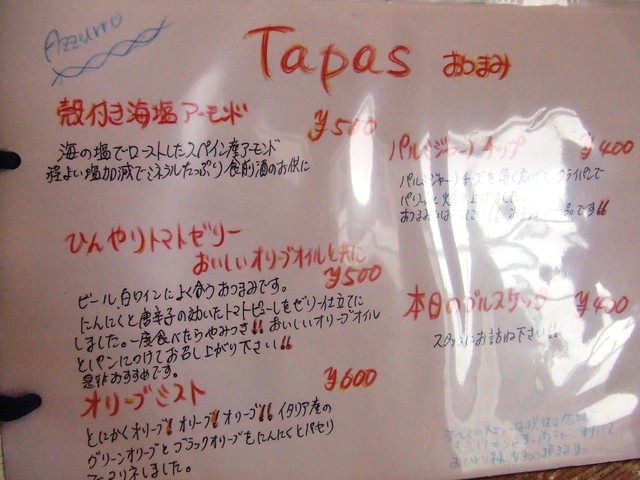 Azzurro
Tapas おつまみ
殻付き海塩アーモンド ¥500
海の塩でローストしたスペイン産アーモンド
程よい塩加減でミネラルたっぷり 食前酒のお供に
ひんやりトマトゼリー
おいしいオリーブオイルと共に
¥500
ビール、白ワインによく合うおつまみです。
にんにくと唐辛子の効いたトマトピューレをゼリー仕立てに
しました。一度食べたらやみつき!! おいしいオリーブオイル
とパンにつけてお召し上がり下さい!!
是非おすすめです。
オリーブミスト ¥600
とにかくオリーブ! オリーブ! オリーブ!! イタリア産の
グリーンオリーブとブラックオリーブをにんにくとパセリ
でマリネしました。
パルミジャーノチップ ¥400
パルミジャーノチーズを フライパンで
パリッと
おつまみ 品です!!
本日のブルスケッタ ¥400
スタッフにお訪ね下さい!!